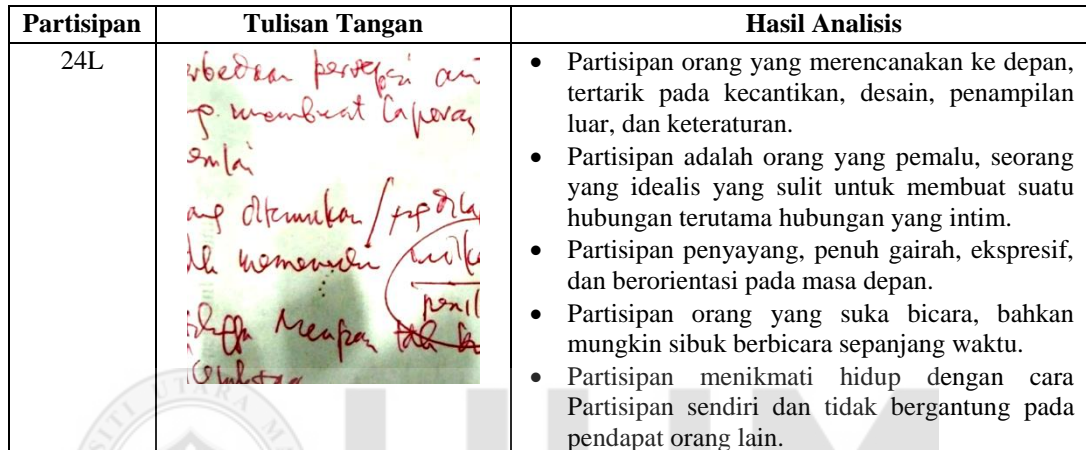 Partisipan Tulisan Tangan Hasil Analisis
24L
rbedaan persepsi an
membuat Laporan
ang ditemukan /
• Partisipan orang yang merencanakan ke depan,
tertarik pada kecantikan, desain, penampilan
luar, dan keteraturan.
• Partisipan adalah orang yang pemalu, seorang
yang idealis yang sulit untuk membuat suatu
hubungan terutama hubungan yang intim.
• Partisipan penyayang, penuh gairah, ekspresif,
dan berorientasi pada masa depan.
• Partisipan orang yang suka bicara, bahkan
mungkin sibuk berbicara sepanjang waktu.
• Partisipan menikmati hidup dengan cara
Partisipan sendiri dan tidak bergantung pada
pendapat orang lain.
UTARA